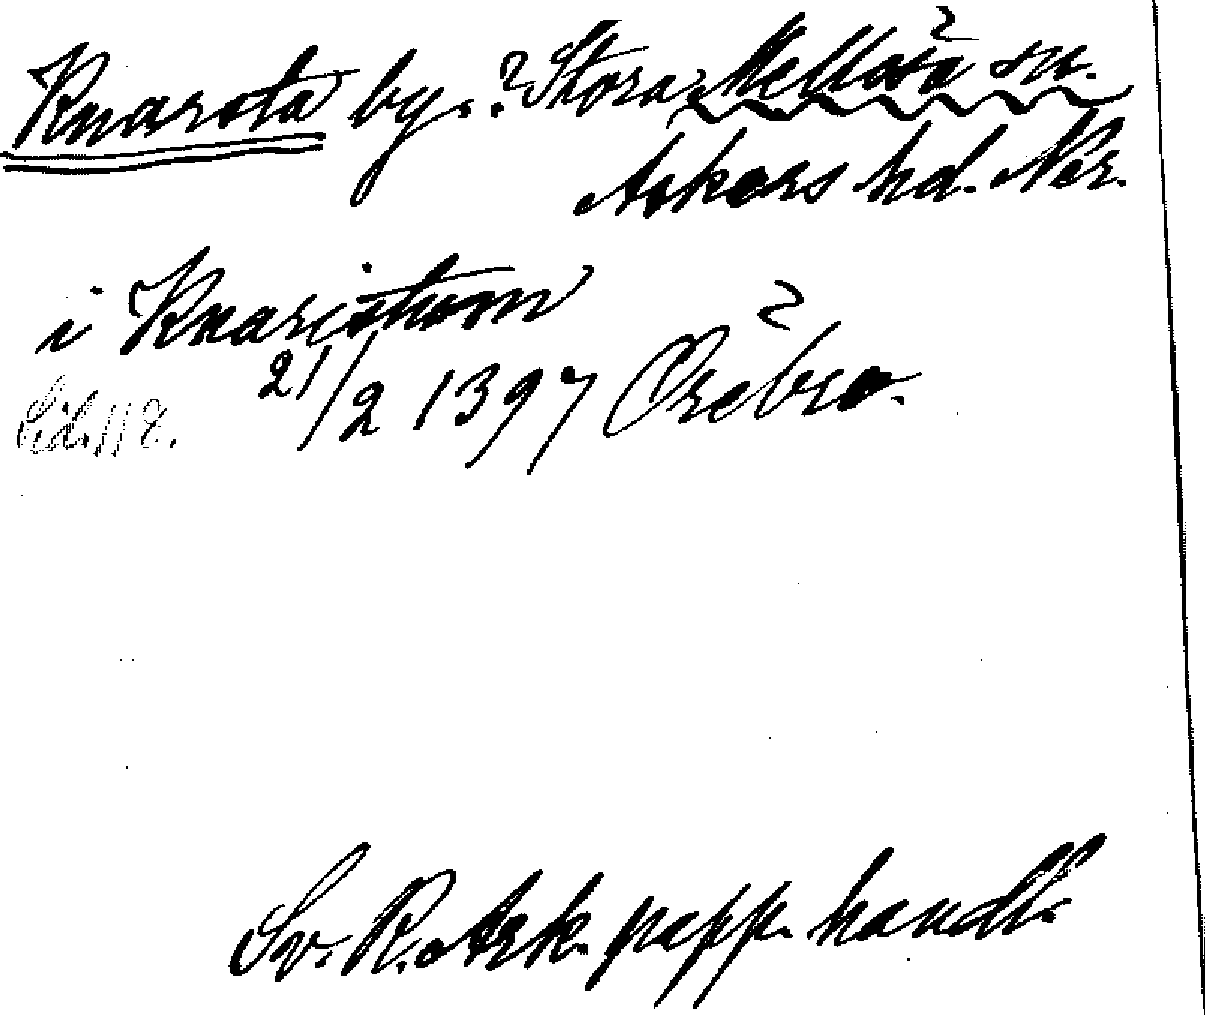 Knarsta by. ? Stora Mellösa sn.
Askers hd. När.
i Knaristom
21/2 1397 Örebro.
Sv. R. Ark. papp. handl.